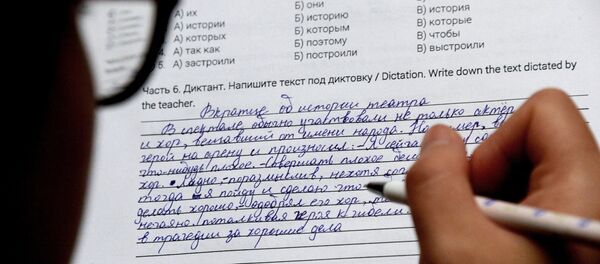 А) их Б) они В) история
А) истории Б) историю В) которые
А) которых Б) которым В) чтобы
4. А) так как Б) поэтому В) выстроили
5. А) застроили Б) построили
Часть 6. Диктант. Напишите текст под диктовку / Dictation. Write down the text dictated by
the teacher.
Вкратце об истории театра
В спектакле обычно участвовали не только актёр
и хор, вещавший от имени народа. Например, в
герой на сцену и произносил: - Я сейчас
что-нибудь плохое. - Совершать плохое
хор. - Ладно, - поразмыслив, нехотя
тогда я пойду и сделаю что-
делать хорошо. Одобрял его хор,
нечаянно подталкивая героя к гибели
в трагедии за хорошие дела